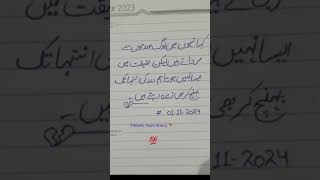 2023
کہانیوں میں لوگ صدموں سے
مر جاتے ہیں لیکن حقیقت میں
ایسا نہیں ہوتا ہم درد کی انتہا تک
پہنچ کر بھی زندہ رہتے ہیں
# 01-11-2024
💯
11-2024